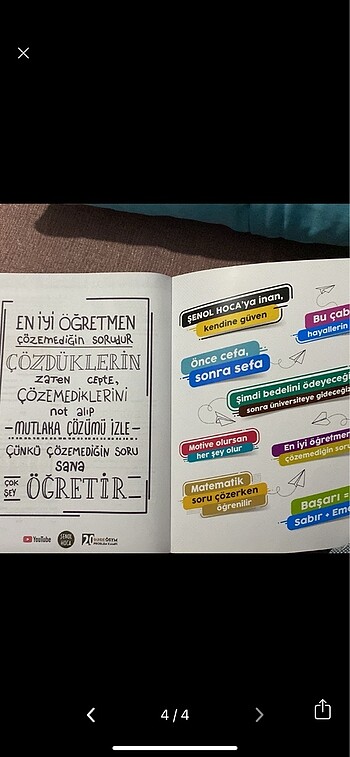 EN İYİ ÖĞRETMEN
ÇÖZEMEDİĞİN SORUDUR
ÇÖZDÜKLERİN
ZATEN CEPTE,
ÇÖZEMEDİKLERİNİ
not alıp
-MUTLAKA ÇÖZÜMÜ İZLE-
ÇÜNKÜ ÇÖZEMEDİĞİN SORU
SANA
ÇOK ŞEY ÖĞRETİR
YouTube
ŞENOL HOCA
ŞENOL HOCA'ya inan,
kendine güven
Bu çab
hayallerin
önce cefa,
sonra sefa
Şimdi bedelini ödeyeceğ
sonra üniversiteye gideceğiz
Motive olursan
her şey olur
En iyi öğretmen
çözemediğin soru
Matematik
soru çözerken
öğrenilir
Başarı =
Sabır + Eme
4/4